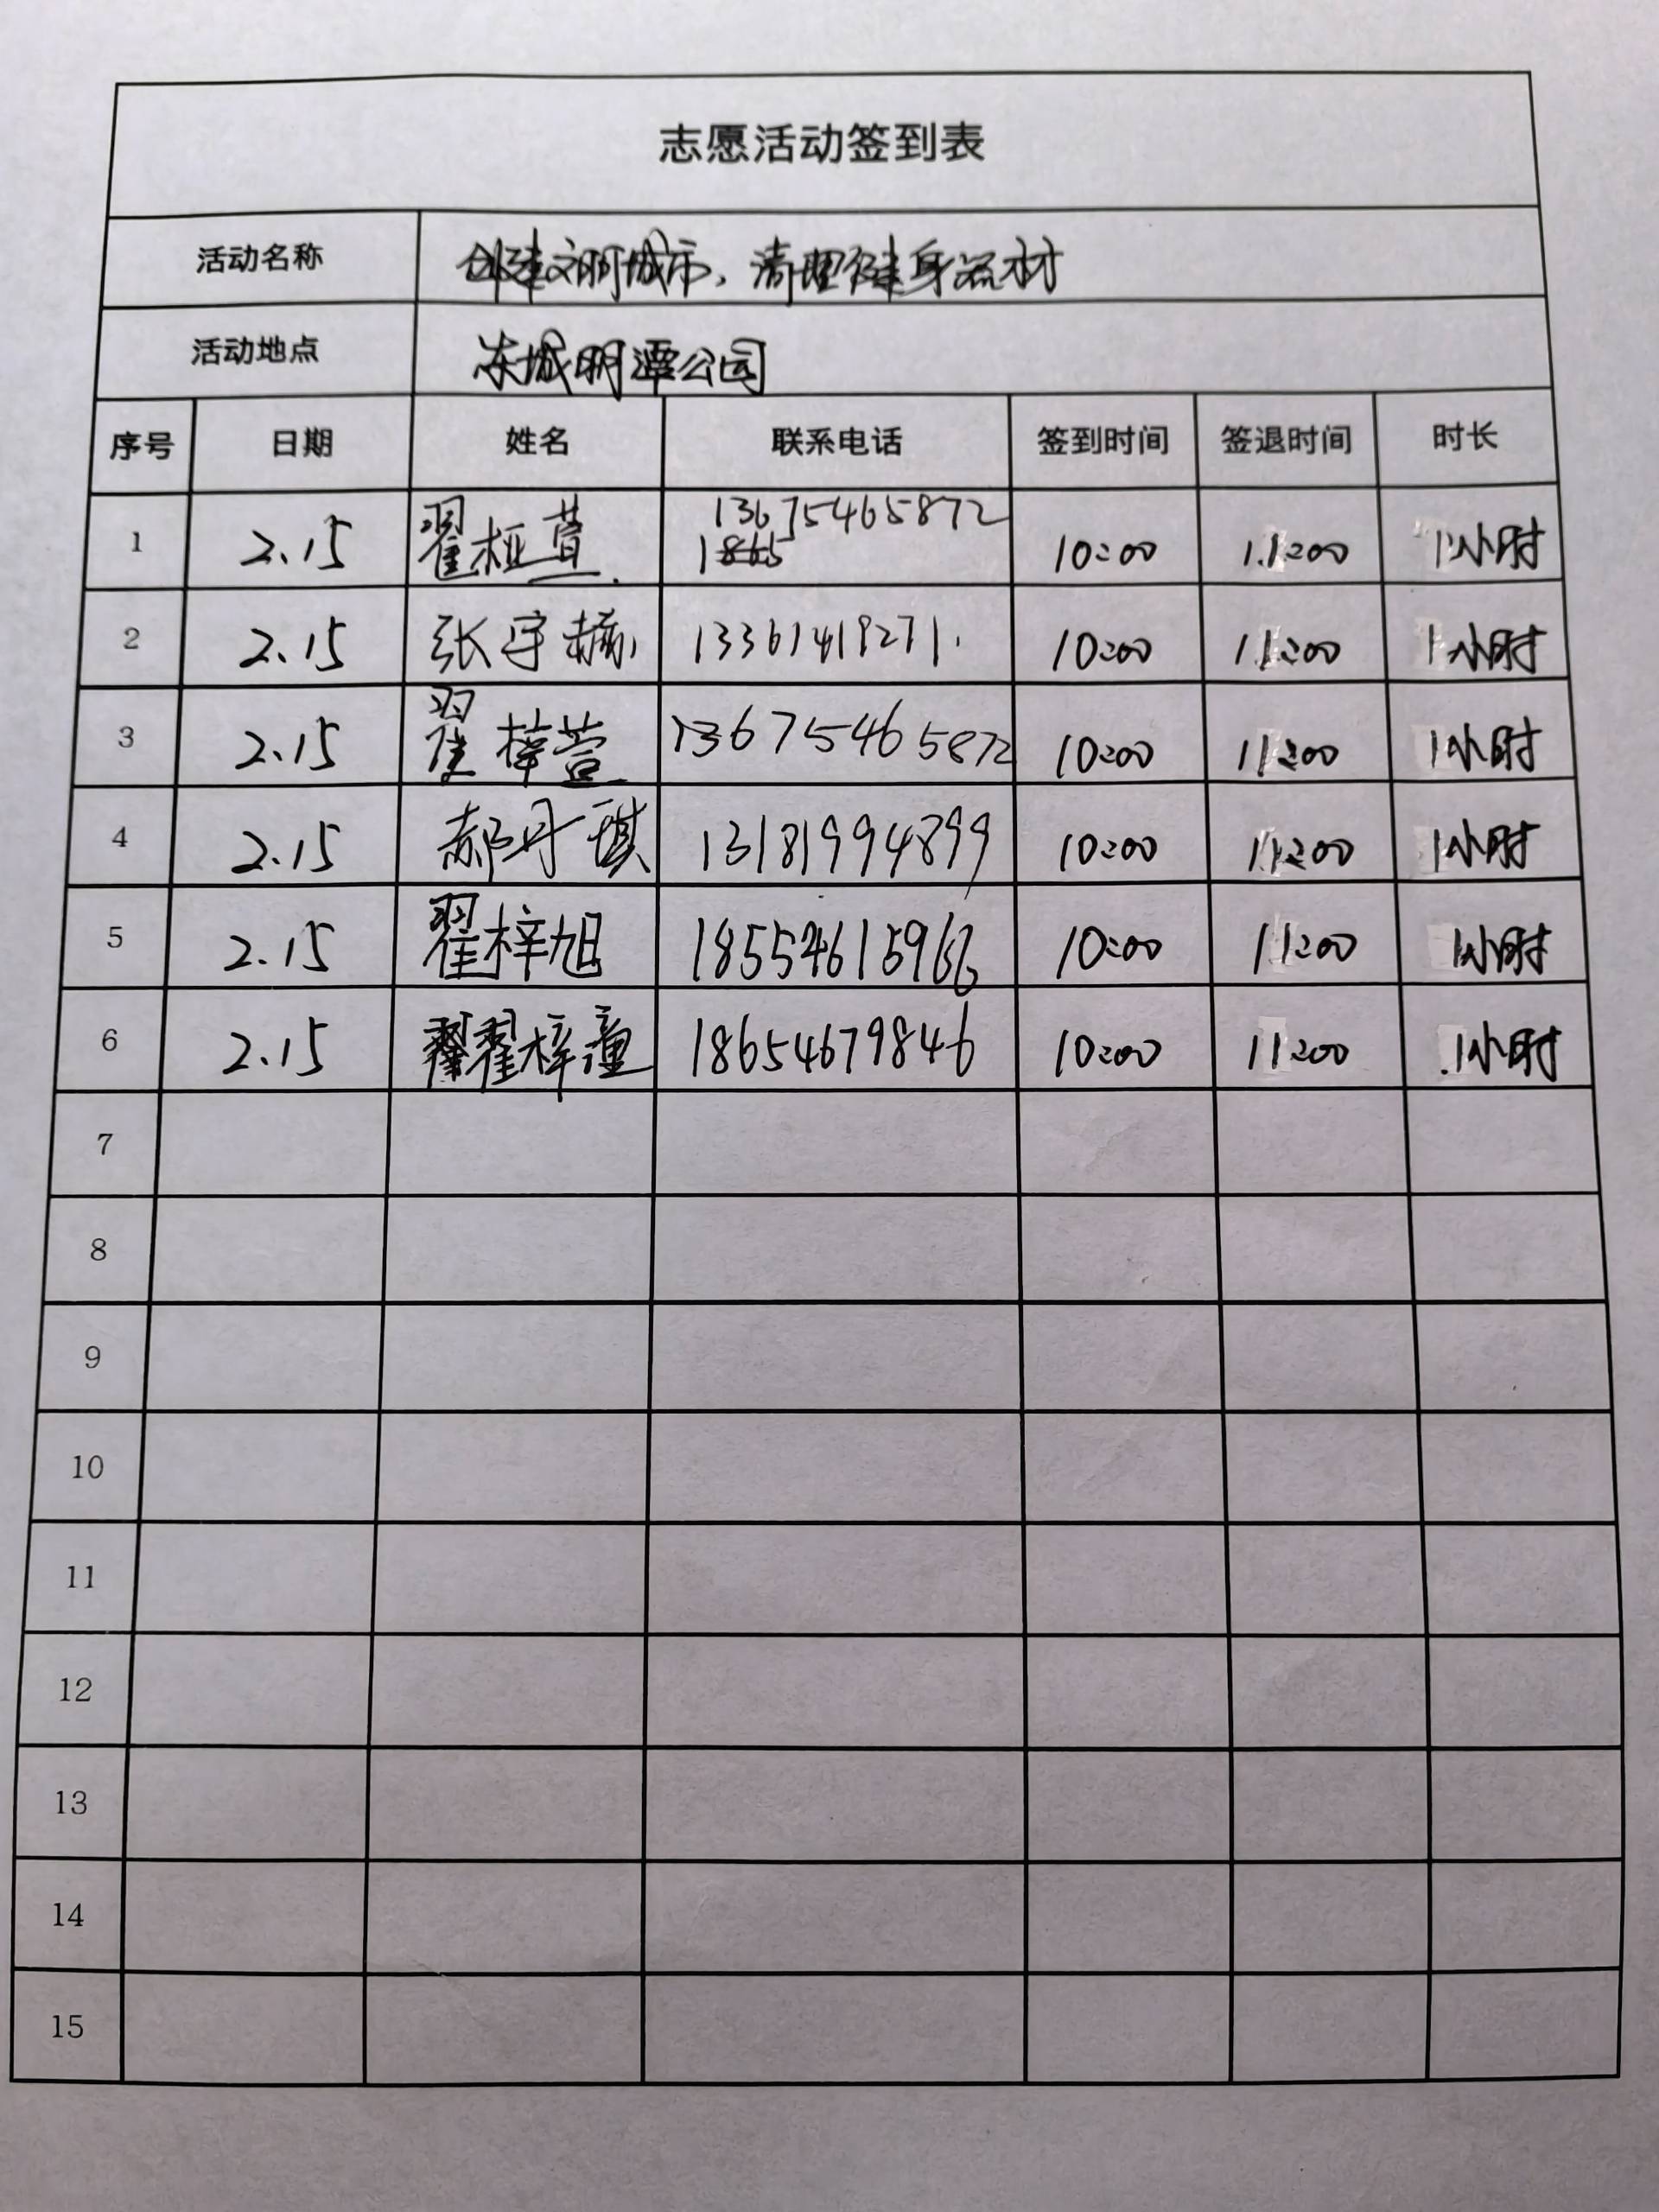 志愿活动签到表
活动名称 创建文明城市，清理健身器材
活动地点 东城明潭公园
序号 日期 姓名 联系电话 签到时间 签退时间 时长
1 2.15 翟桠萱 13675465872 10:00 11:00 1小时
1865
2 2.15 张宇赫 13361419271 10:00 11:00 1小时
3 2.15 翟梓萱 13675465872 10:00 11:00 1小时
4 2.15 郝丹琪 13181994899 10:00 11:00 1小时
5 2.15 翟梓旭 10:00 11:00 1小时
6 2.15 翟梓潼 18654679846 10:00 11:00 1小时
7
8
9
10
11
12
13
14
15